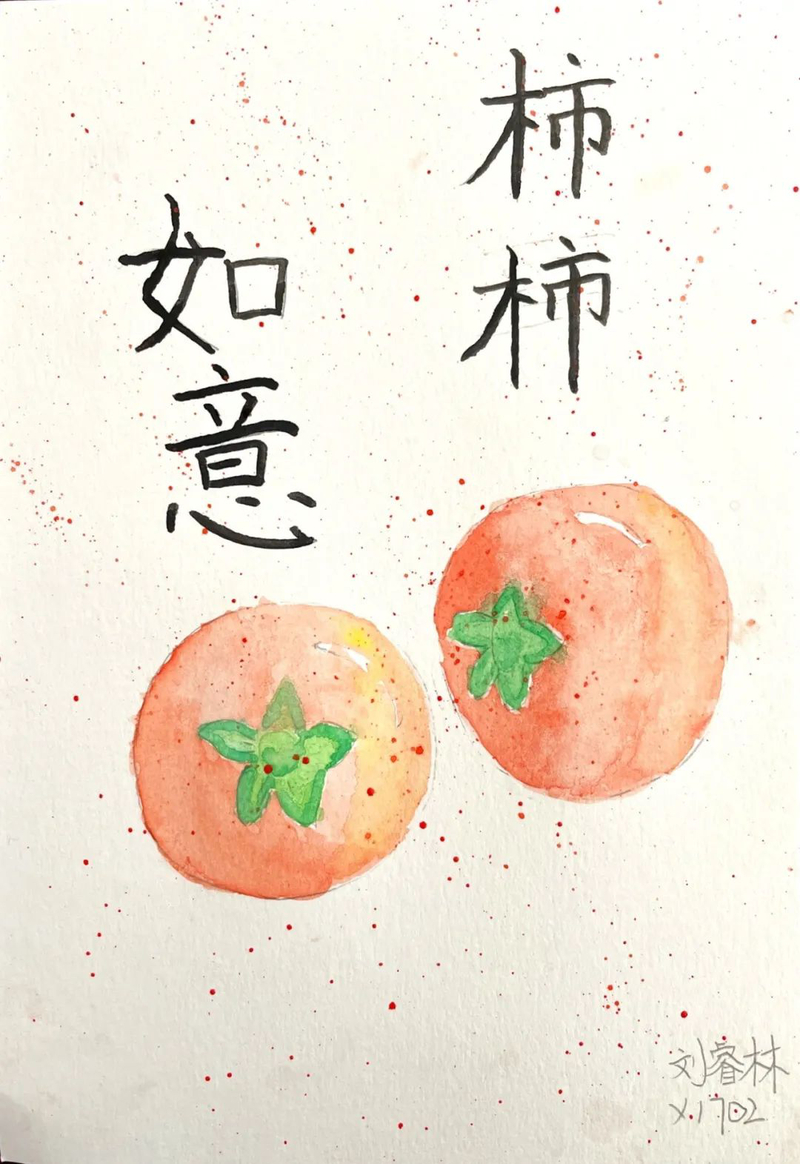 柿柿
如意
刘睿林
X1702